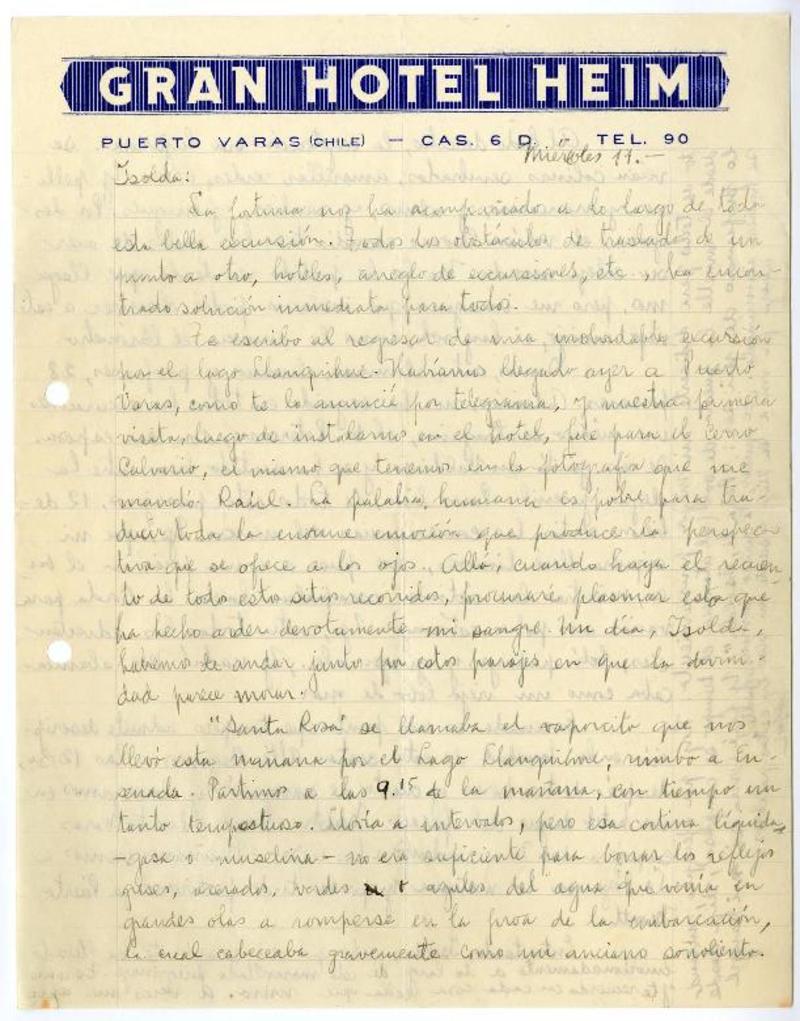 GRAN HOTEL HEIM
PUERTO VARAS (CHILE) — CAS. 6 D. — TEL. 90
Miércoles 11.—
Isolda:
La fortuna nos ha acompañado a lo largo de toda
esta bella excursión. Todos los obstáculos de traslado de un
punto a otro, hoteles, arreglo de excursiones, etc., ha encon-
trado solución inmediata para todos.
Te escribo al regresar de una inolvidable excursión
por el lago Llanquihue. Habíamos llegado ayer a Puerto
Varas, como te lo anuncié por telegrama, y nuestra primera
visita, luego de instalarnos en el hotel, fué para el Cerro
Calvario, el mismo que tenemos en la fotografía que me
mandó Raúl. La palabra humana es pobre para tra-
ducir toda la enorme emoción que produce la perspec-
tiva que se ofece a los ojos. Allá, cuando haga el recuen-
to de todos estos sitios recorridos, procuraré plasmar esto que
ha hecho arder devotamente mi sangre. Un día, Isolda,
habremos de andar juntos por estos parajes en que la divini-
dad parece morar.
"Santa Rosa" se llamaba el vaporcito que nos
llevó esta mañana por el Lago Llanquihue, rumbo a En-
senada. Partimos a las 9.15 de la mañana, con tiempo un
tanto tempestuoso. Llovía a intervalos, pero esa cortina líquida
—gasa o muselina— no era suficiente para borrar los reflejos
grises, acerados, verdes o azules del agua que venía en
grandes olas a romperse en la proa de la embarcación,
la cual cabeceaba gravemente como un anciano soñoliento.